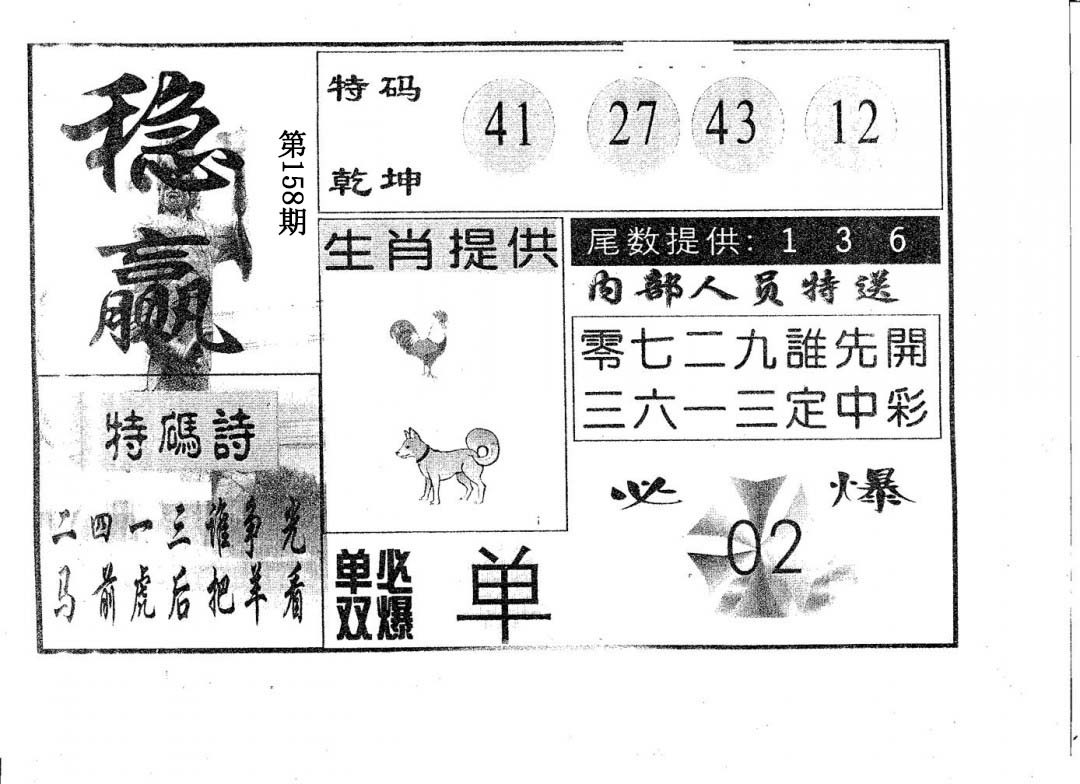 稳赢
第158期
特码
乾坤
41 27 43 12
特碼詩
二四一三谁争光
马前虎后把羊看
生肖提供
单双
必爆
单
尾数提供: 1 3 6
内部人员特送
零七二九誰先開
三六一三定中彩
必爆
02